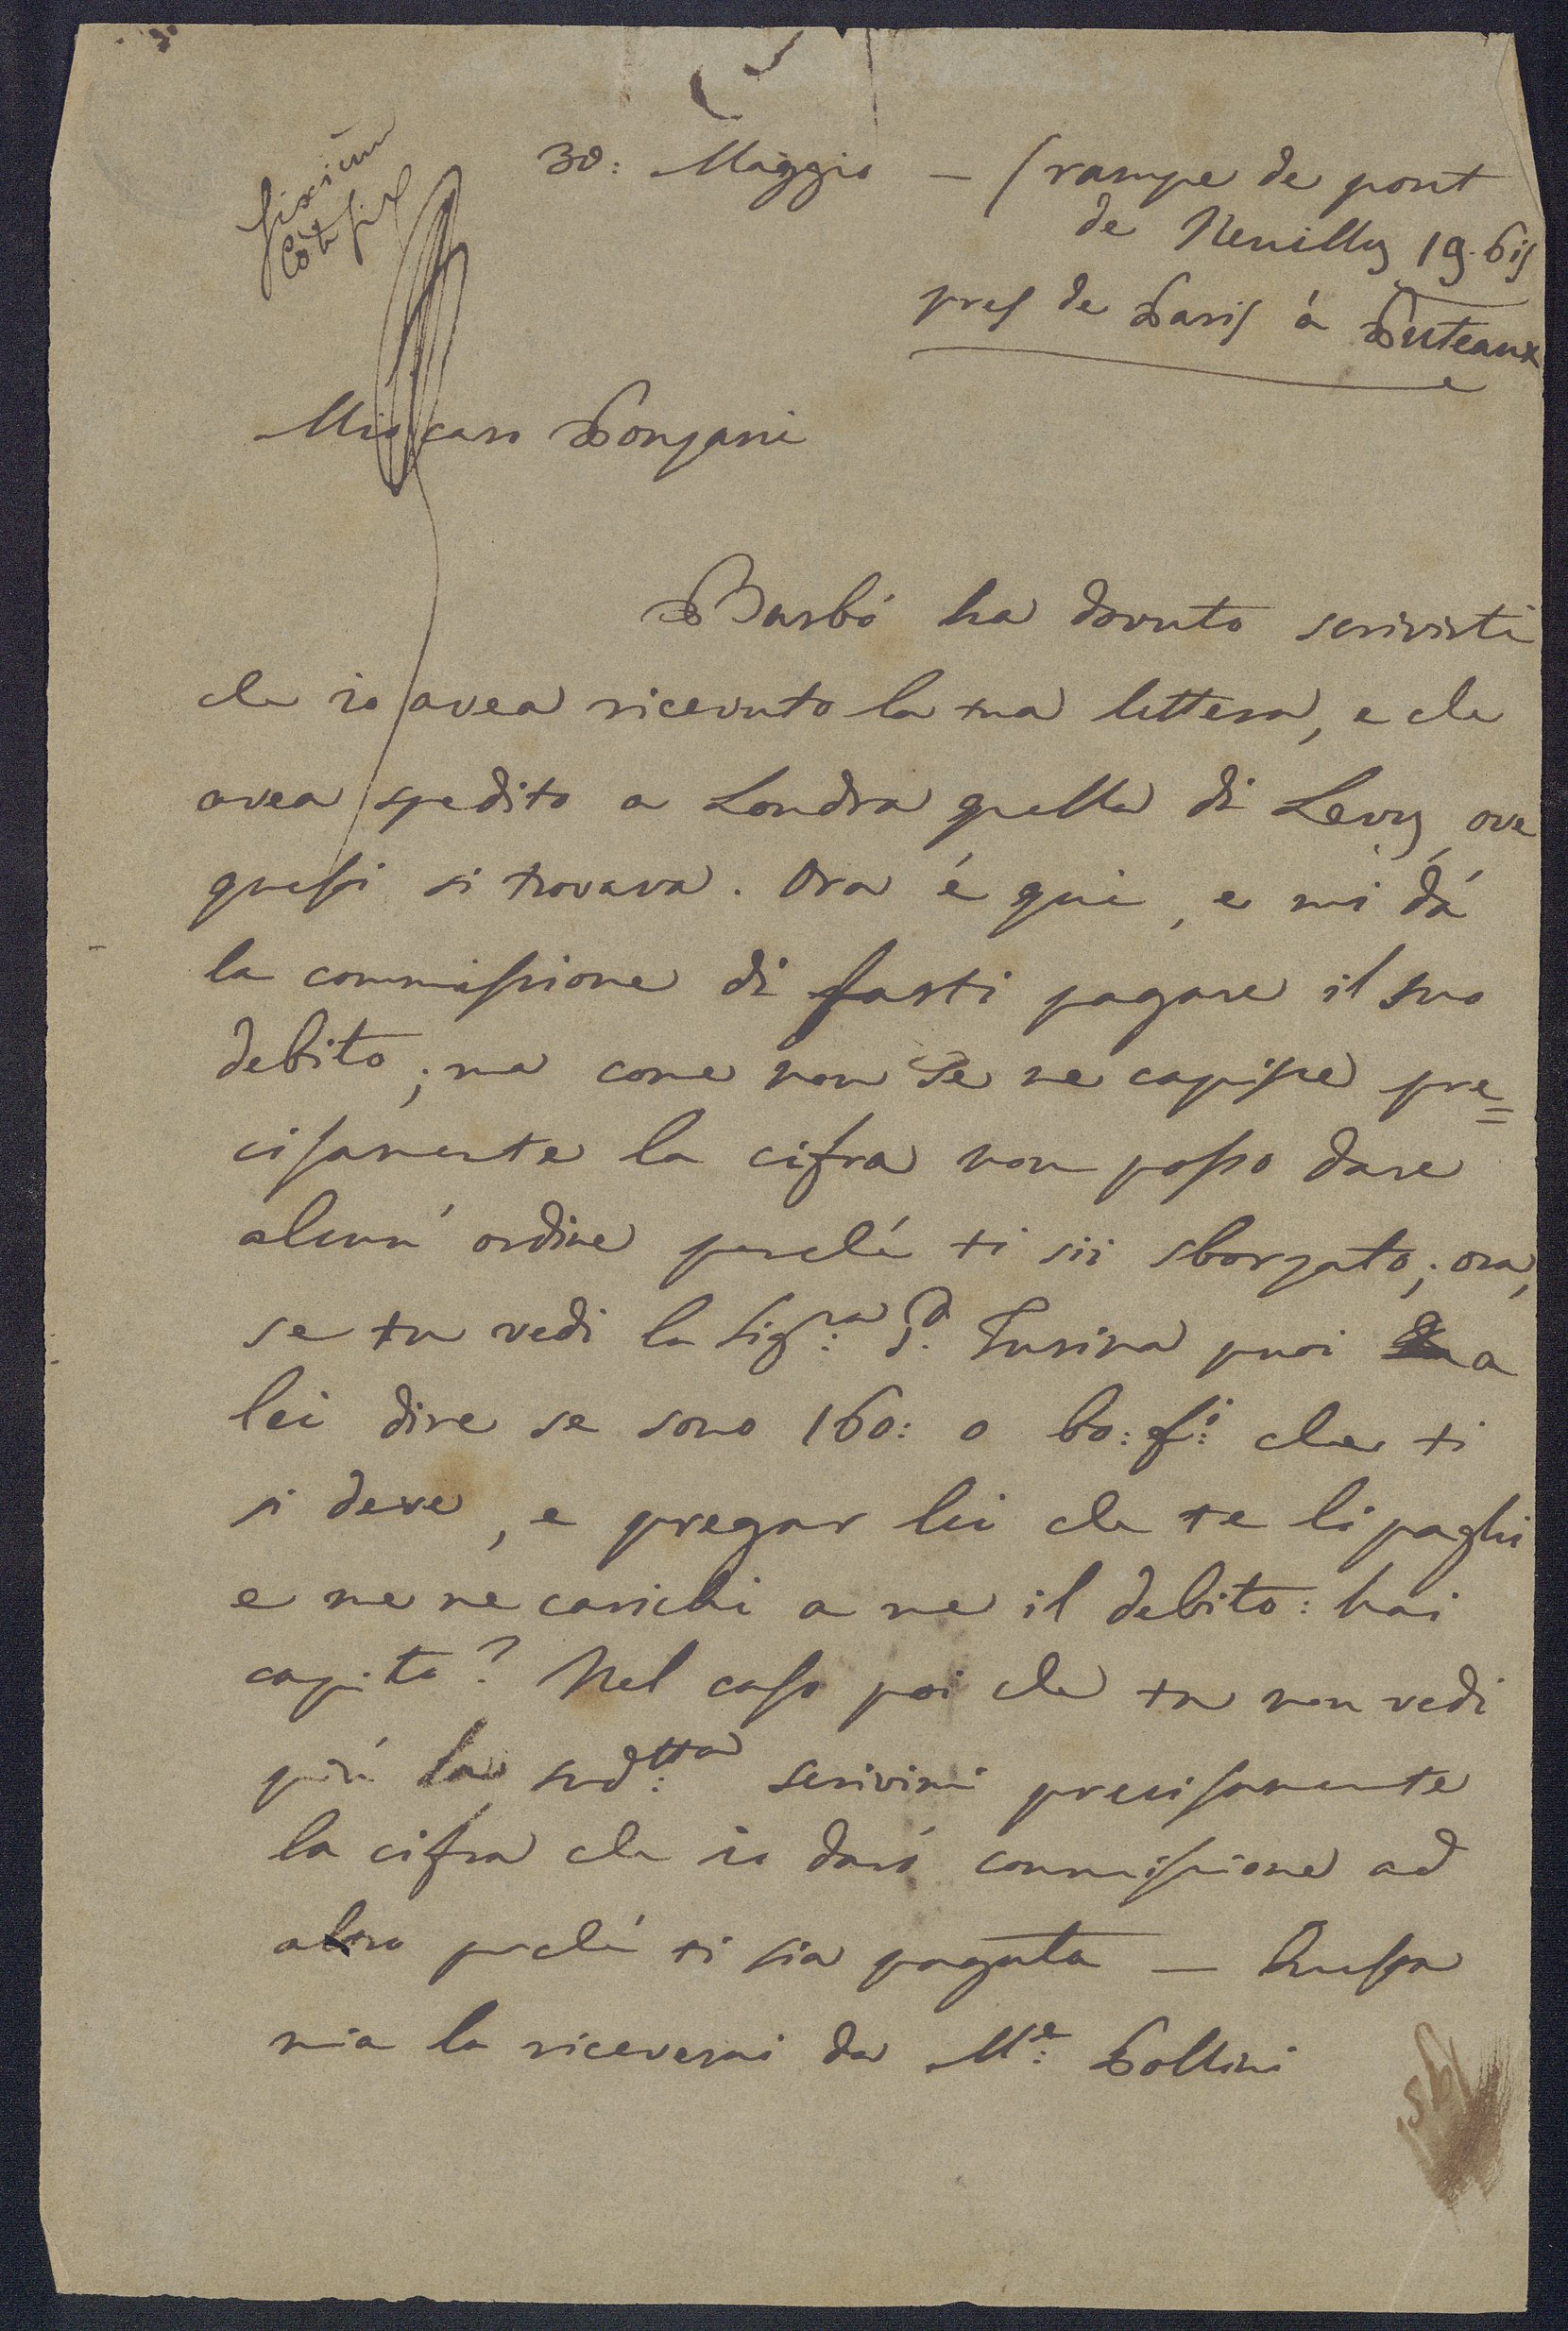 30: Maggio – rampe de pont
de Neuilly 19. bis
pres de Paris á Puteaux
Mio caro Bonzani
Barbó ha dovuto scriverti
che io avea ricevuto la tua lettera, e che
avea spedito a Londra quella di Levy, ove
questi si trovava. Ora é qui, e mi dá
la commissione di farti pagare il suo
debito; ma come non se ne capisce pre=
cisamente la cifra non posso dare
alcun' ordine perché ti sii sborzato; ora,
se tu vedi la Sig:ra Turina puoi a
lei dire se sono 160: o 60: f:i che ti
si deve, e pregar lei che te li paghi
e me ne carichi a me il debito: hai
capito? Nel caso poi che tu non vedi
piú la sud:tta scrivimi precisamente
la cifra che io daró commissione ad
altro perché ti sia pagata – Questa
mia la riceverai da M:e Pollini